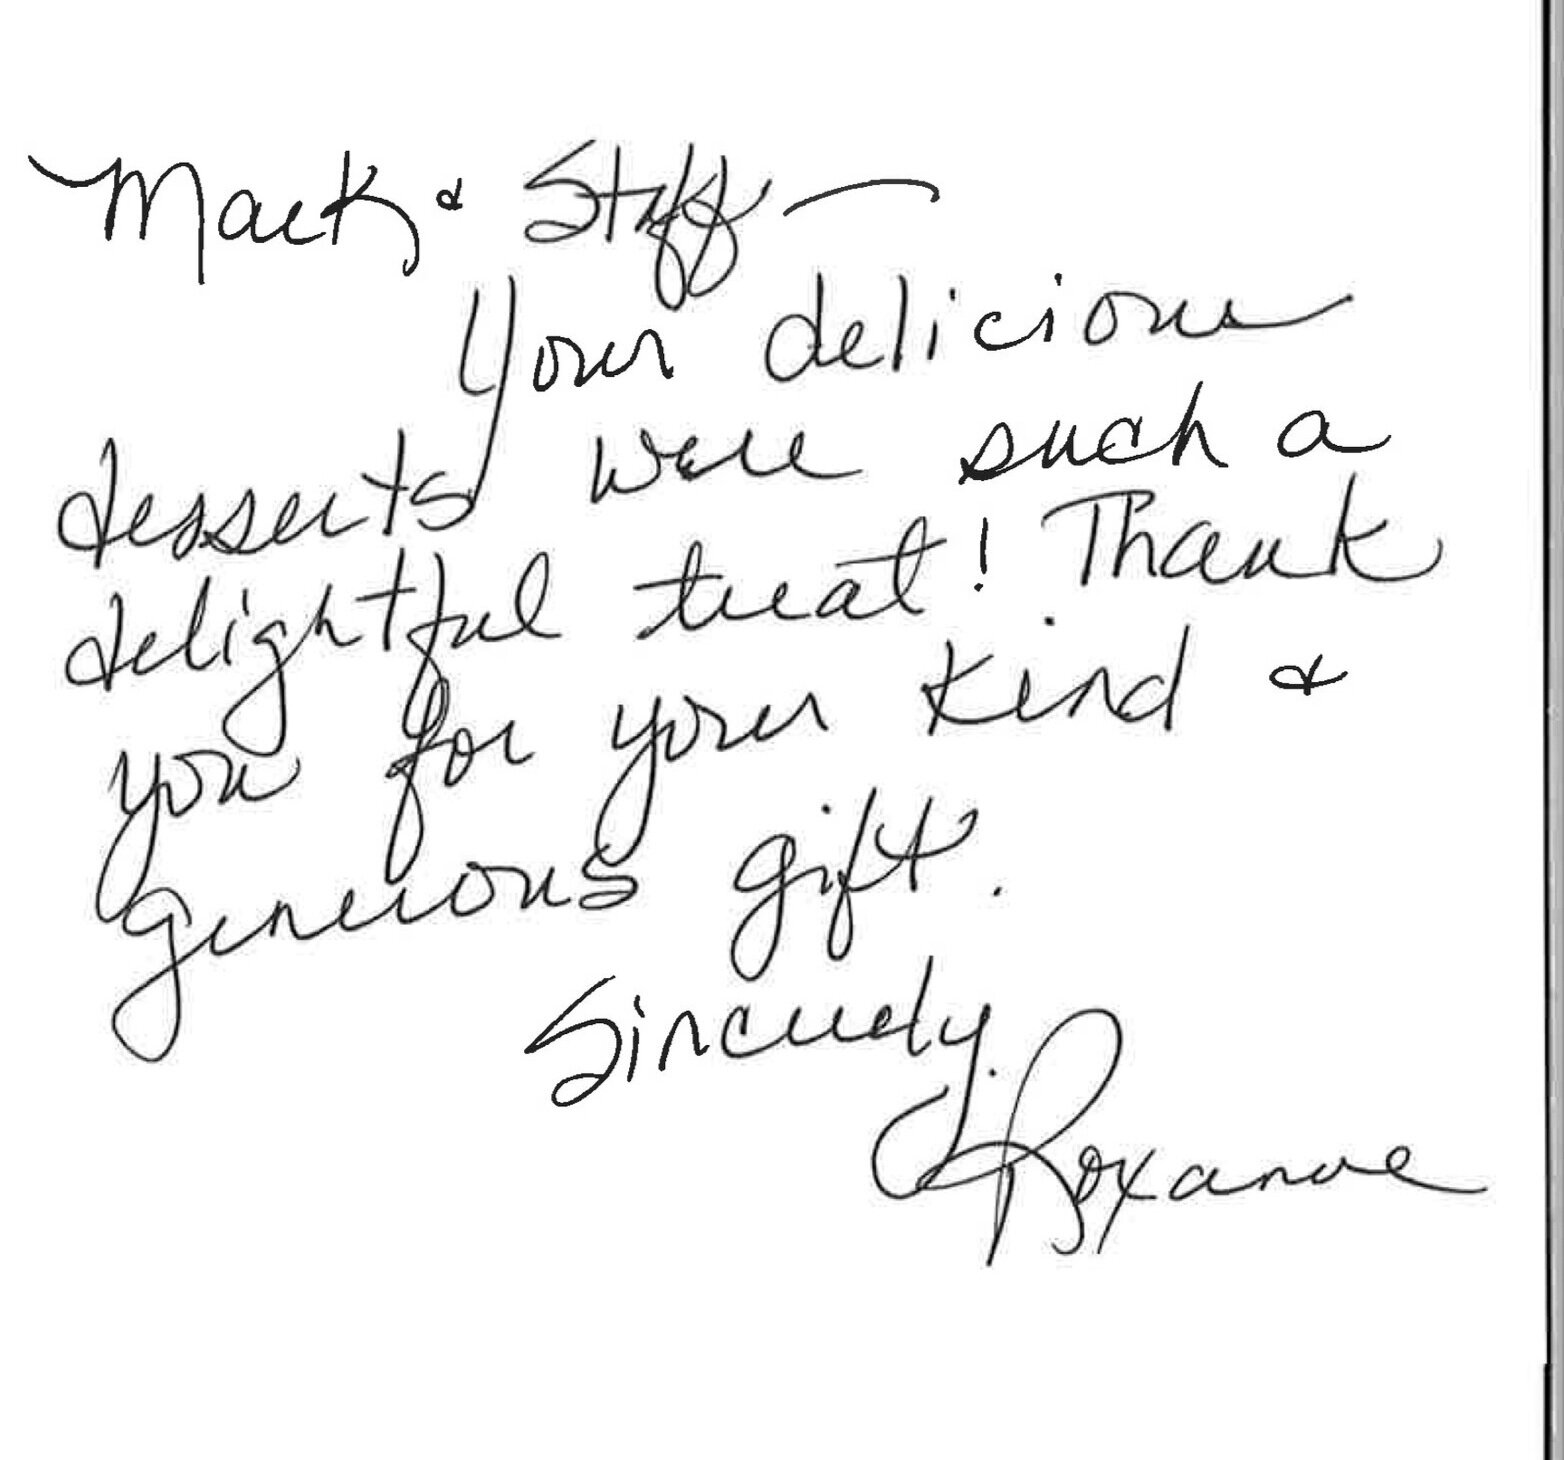 Mark & Staff —
Your delicious
desserts were such a
delightful treat! Thank
you for your kind &
generous gift.
Sincerely,
Roxanne